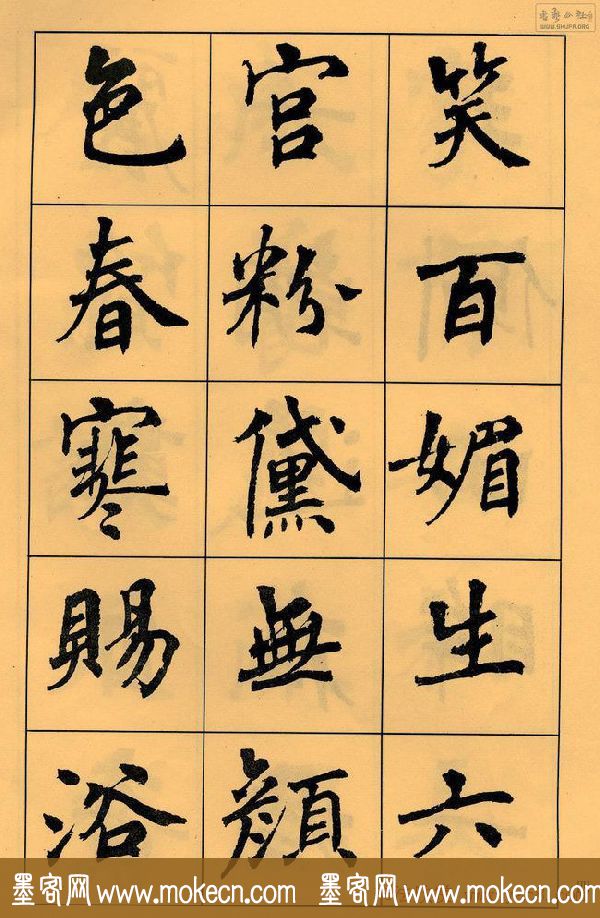 笑百媚生六
宫粉黛無顔
色春寒賜浴
墨客网 www.mokecn.com 墨客网 www.mokecn.com
WWW.SHJFR.ORG